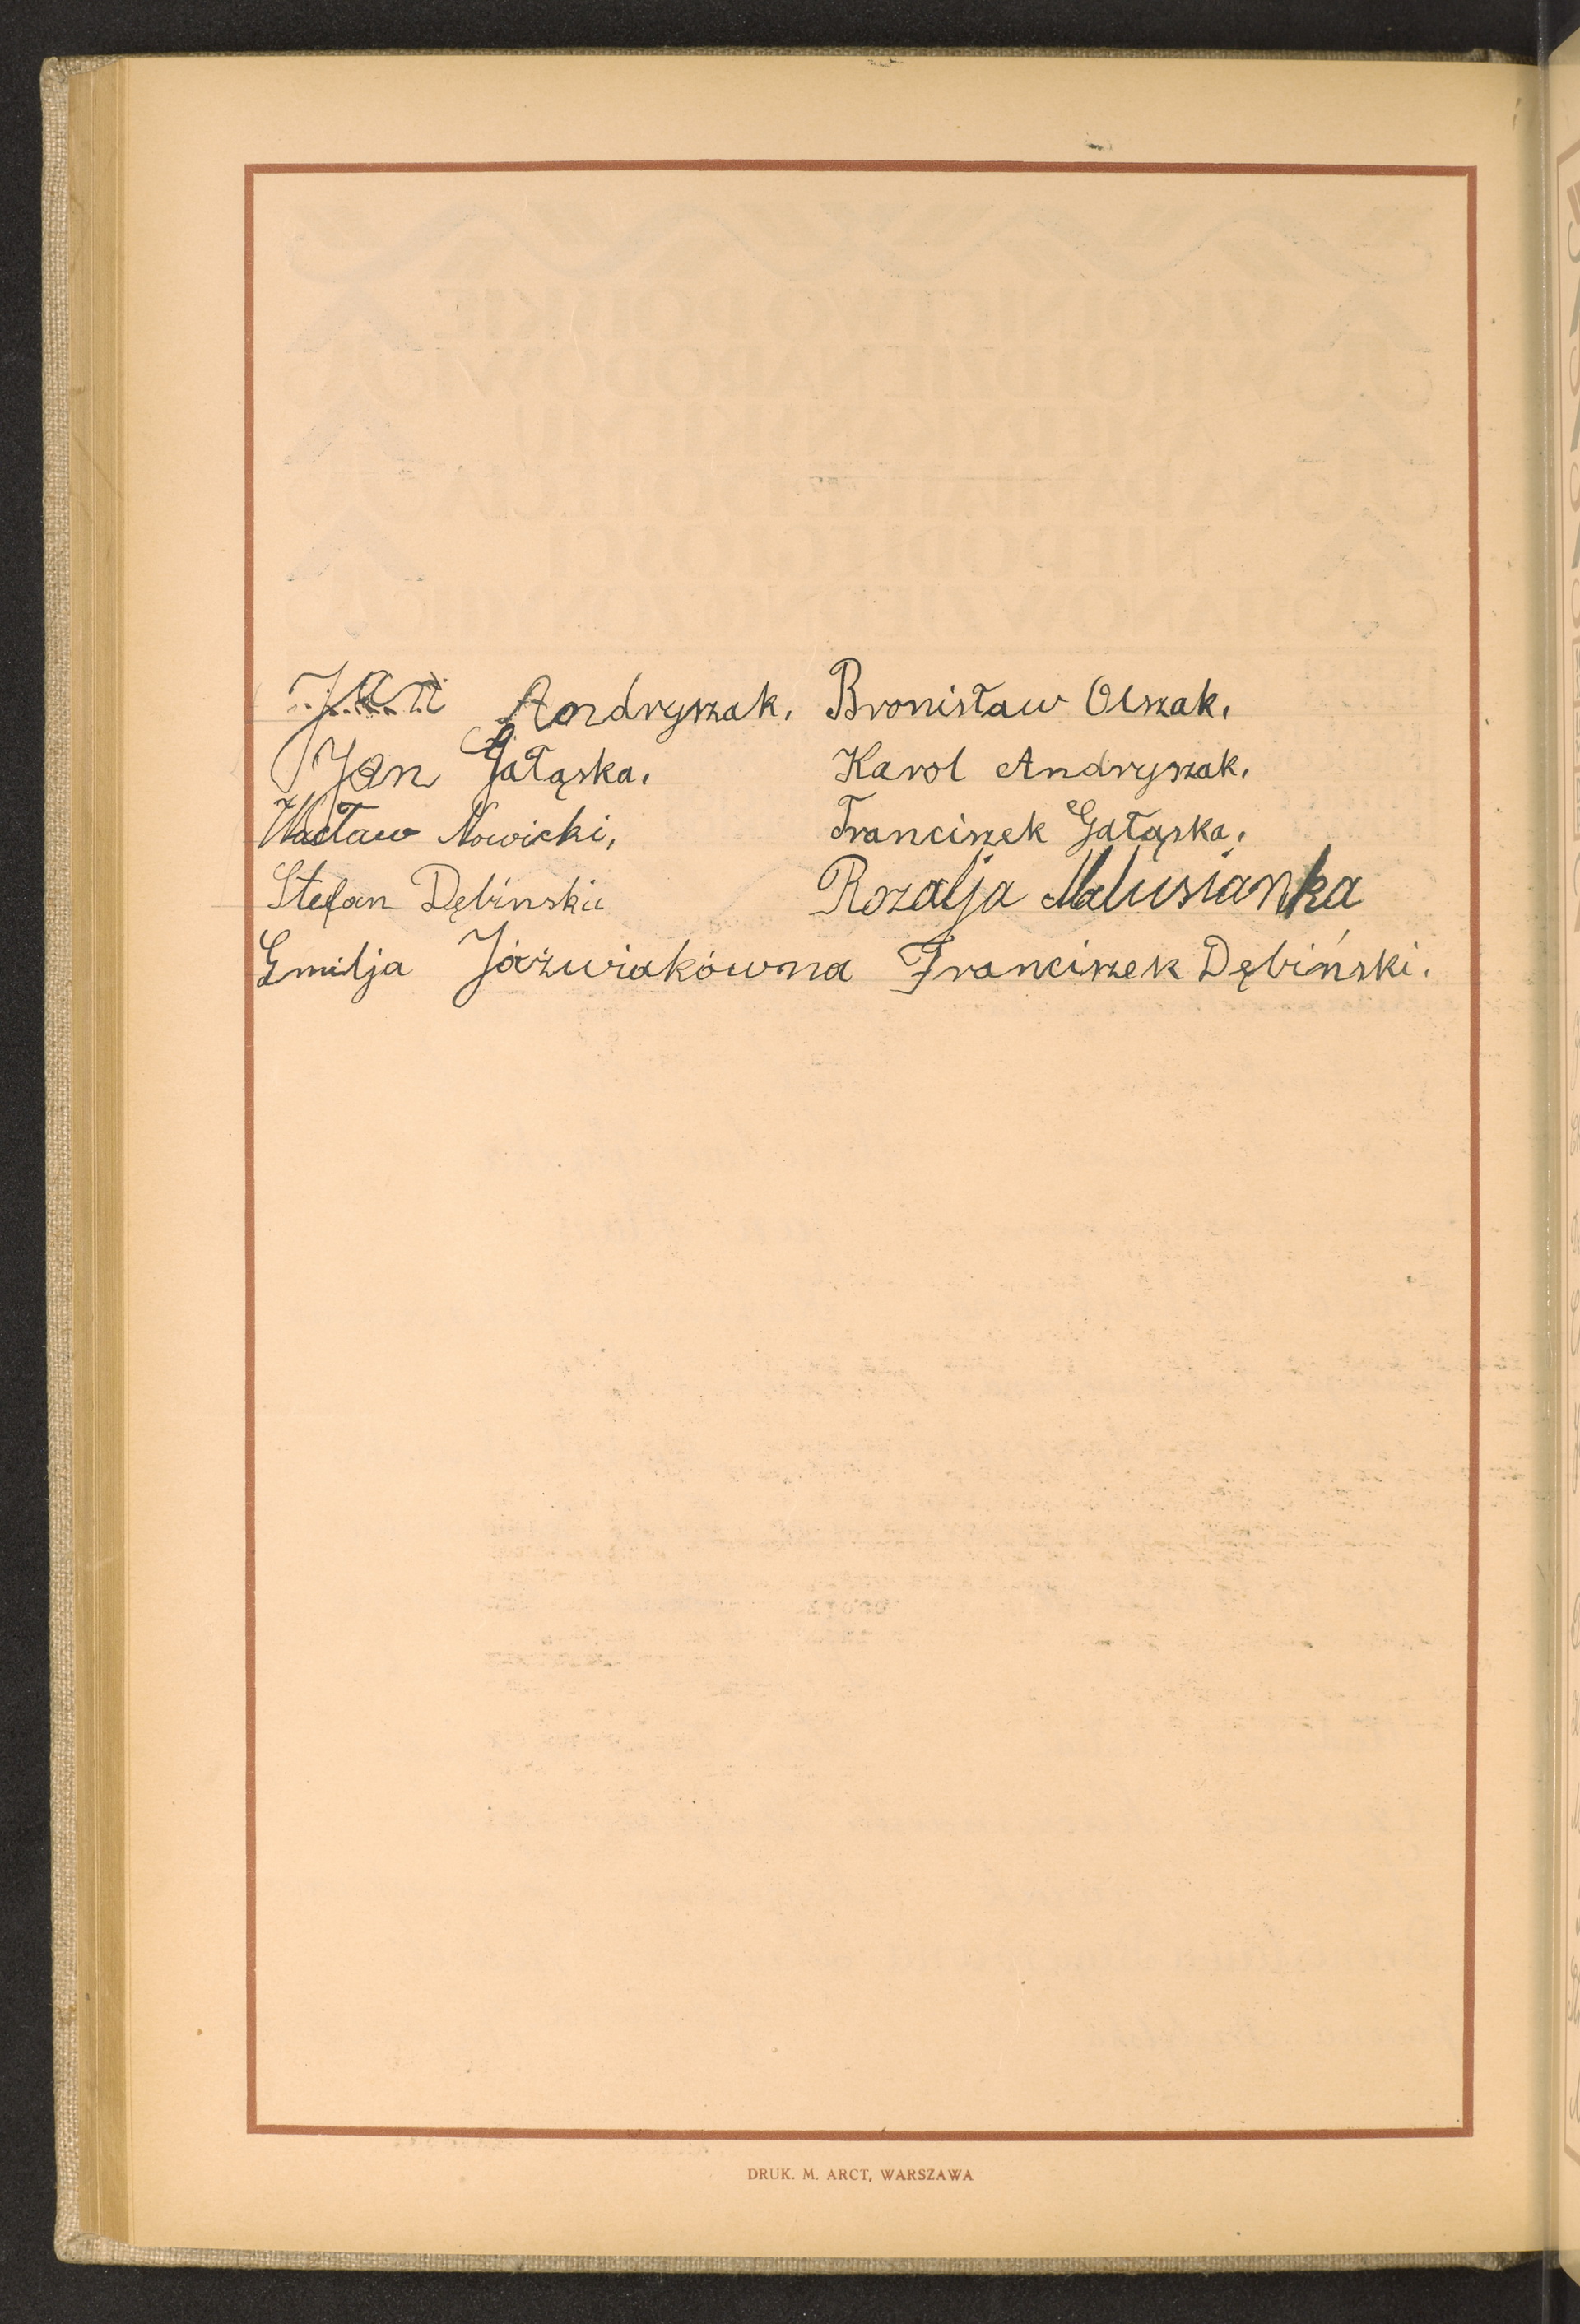 Jan Andryszak. Bronisław Olszak.
Jan Gałąska. Karol Andryszak.
Wacław Nowicki, Franciszek Gałąska.
Stefan Dębinski Rozalja Malusianka
Emilja Jóźwiakówna Franciszek Dębiński.
DRUK. M. ARCT, WARSZAWA